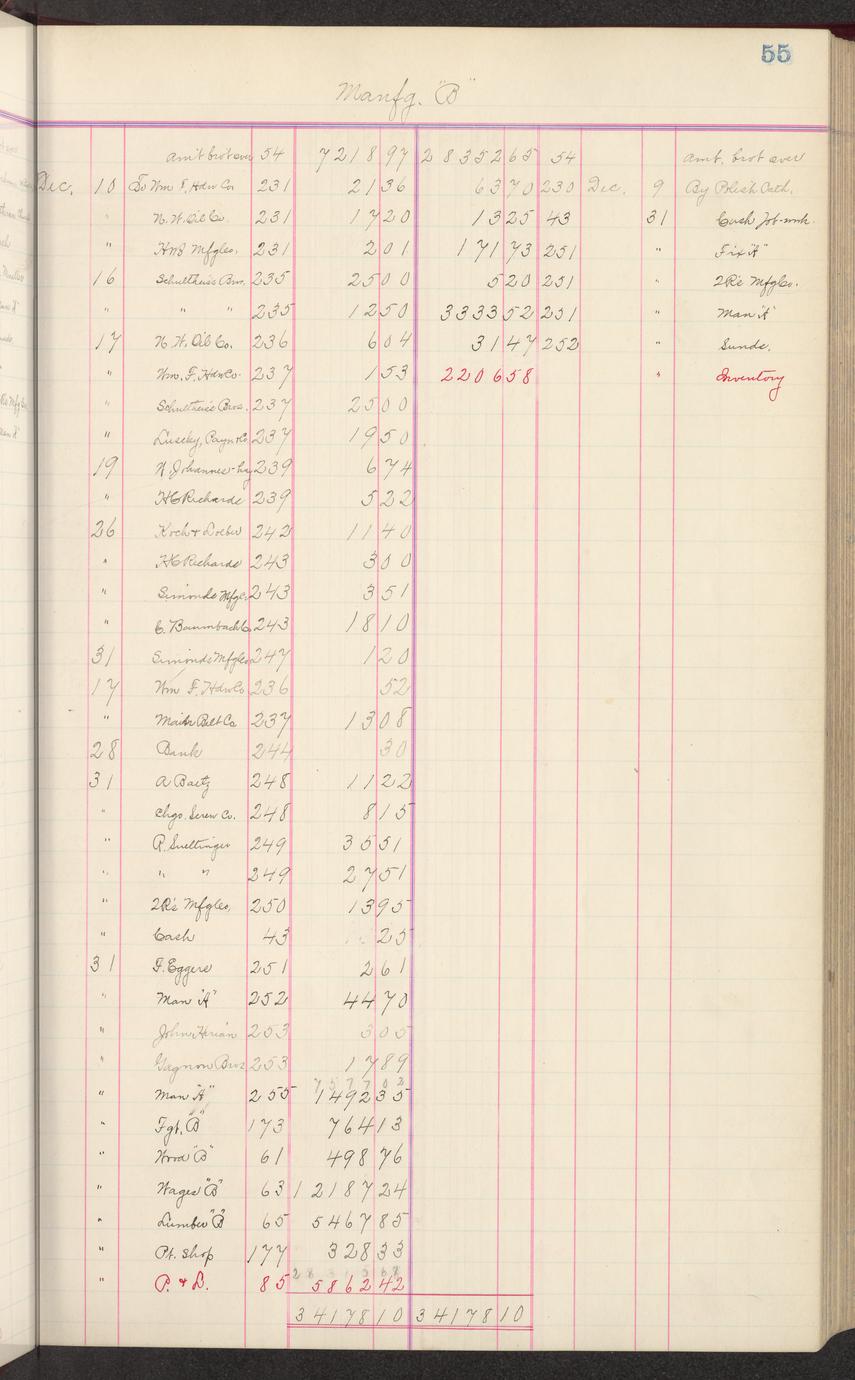 55
Manfg. "B"
Amt brot over 54 7218 97 28352 65 54 Amt. brot over
Dec. 10 To Wm F. Hdw Co 231 21 36 63 70 230 Dec. 9 By Polish Cath.
" N. W. Oil Co. 231 17 20 13 25 43 31 Cash Job-work.
" Mfg Co. 231 2 01 171 73 251 " Fix "A"
16 Schultheiss Bros. 235 25 00 5 20 251 " 2R's Mfg Co.
" " " 235 12 50 3333 52 251 " Man "A"
17 N. W. Oil Co. 236 6 04 31 47 252 " Sunds.
" Wm. F. Hdw Co. 237 1 53 2206 58 " Inventory
" Schultheiss Bros. 237 25 00
" 237 19 50
19 N. Johannes 239 6 74
" H C Richards 239 5 22
26 Koch & Loeber 242 11 40
" H C Richards 243 3 00
" Simonds Mfg Co 243 3 51
" C. Baumbach Co. 243 18 10
31 Simonds Mfg Co 247 1 20
17 Wm F. Hdw Co 236 52
" Main Belt Co 237 13 08
28 Bank 244 30
31 A Baetz 248 11 22
" Chgo. Screw Co. 248 8 15
" R. 249 35 51
" " " 249 27 51
" 2R's Mfg Co. 250 13 95
" Cash 43 25
31 F. Eggers 251 2 61
" Man "A" 252 44 70
" John 253 3 05
" Gagnon Bros 253 17 89
" Man "A" 255 1492 35
" Fgt. "B" 173 764 13
" Wood "B" 61 498 76
" Wages "B" 63 12187 24
" Lumber "B" 65 5467 85
" Pt. Shop 177 328 33
" P. & L. 85 5862 42
34178 10 34178 10